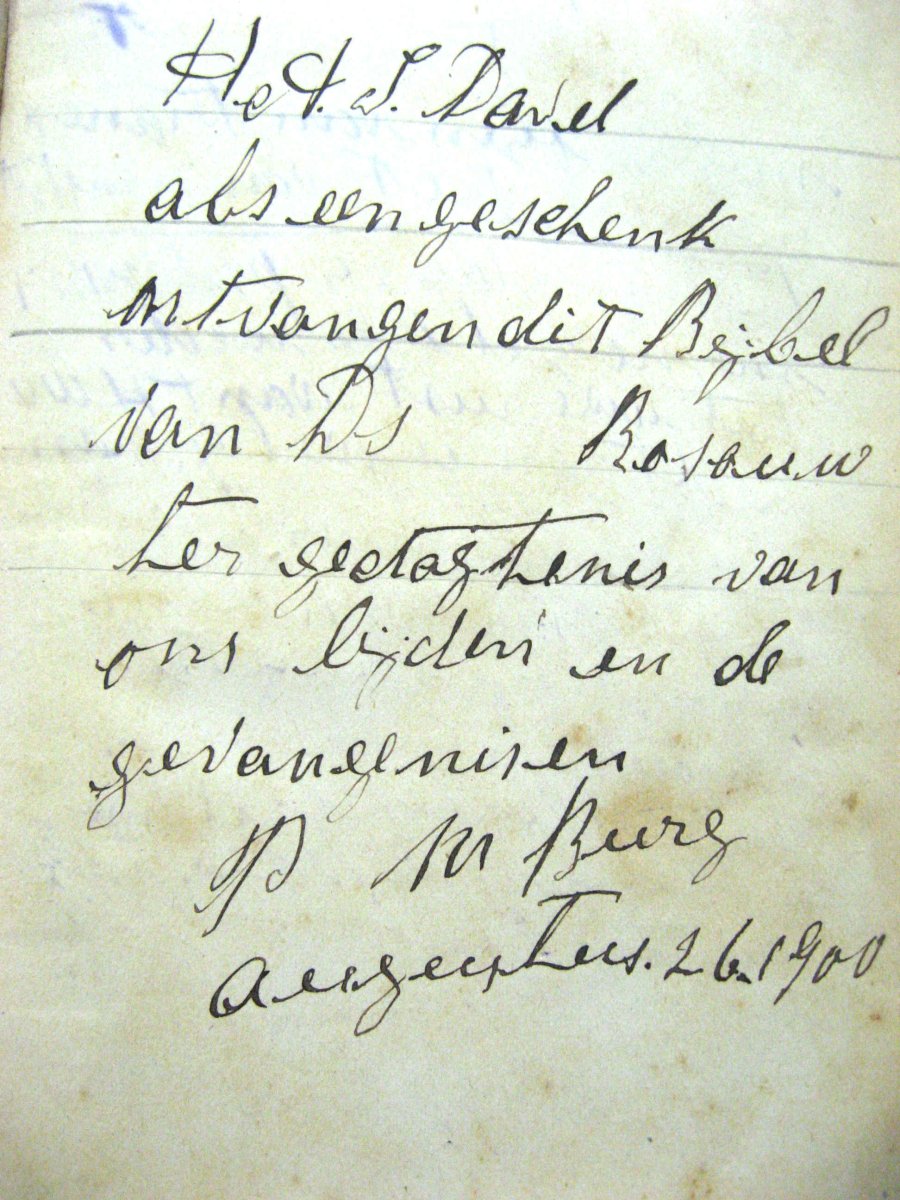 Het. J. Davel
als een geschenk
ontvangen dit Bijbel
van Ds Rosouw
ter gedagtenis van
ons lijden en de
gevangenisen
P M Burg
augustus. 26.1900